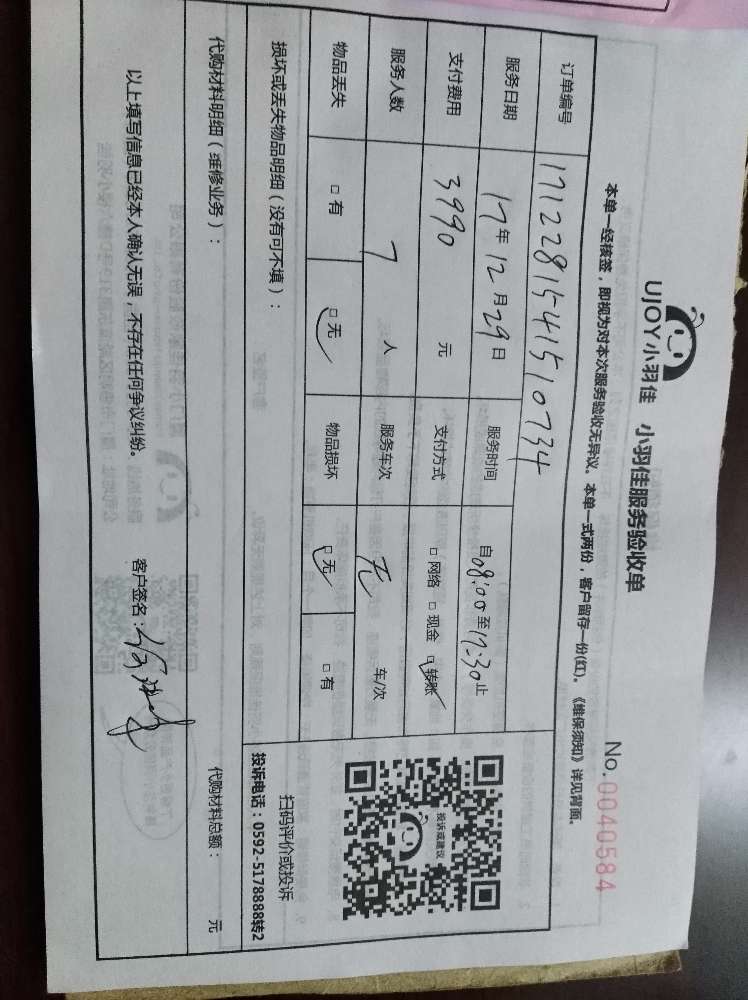 UJOY小羽佳 小羽佳服务验收单
No.0040584
本单一经核签，即视为对本次服务验收无异议。本单一式两份，客户留存一份(红)。《维保须知》详见背面。
订单编号 1712281541510734
服务日期 17年12月29日 服务时间 自08:00至17:30止
支付费用 3990 元 支付方式 □网络 □现金 □转账
服务人数 7 人 服务车次 无 车/次
物品丢失 □有 □无 物品损坏 □无 □有
投诉或建议
扫码评价或投诉
投诉电话：0592-5178888转2
损坏或丢失物品明细（没有可不填）：
代购材料明细（维修业务）： 代购材料总额： 元
以上填写信息已经本人确认无误，不存在任何争议纠纷。 客户签名：